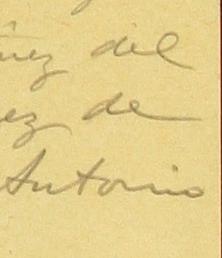 ñez del
ez de
Antonio